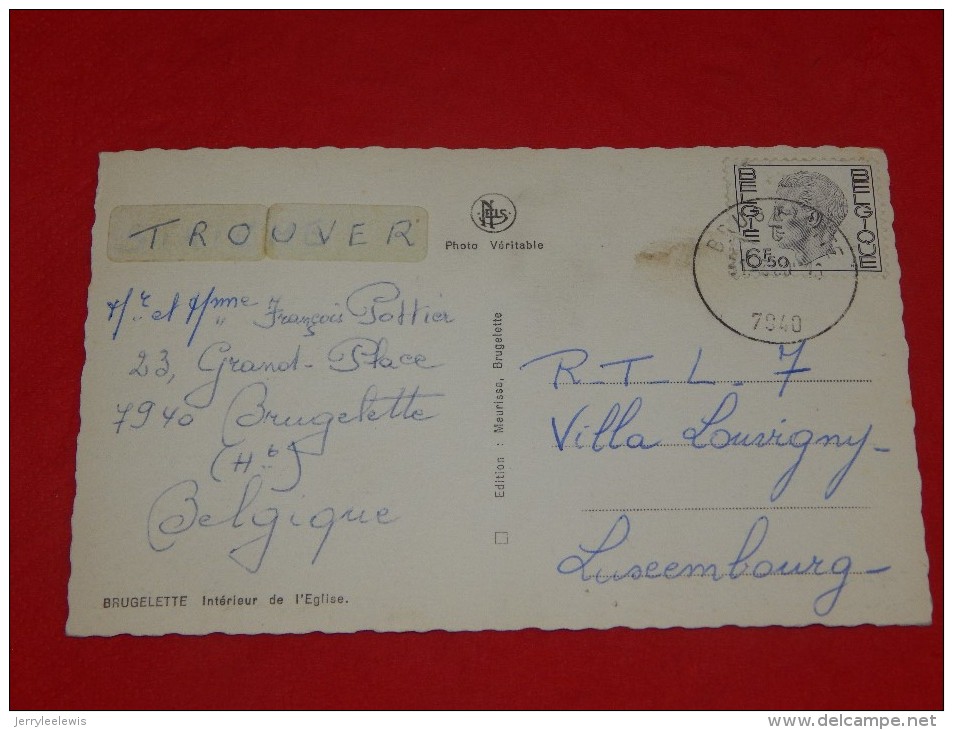 TROUVER
NELS
Photo Véritable
BELGIE BELGIQUE
6F50
7940
Mr et Mme François Pottier
23, Grand-Place
7940 Brugelette
(Ht)
Belgique
Edition : Meurisse, Brugelette
R-T-L. 7
Villa Louvigny-
Luxembourg-
BRUGELETTE Intérieur de l'Eglise.
jerryleelewis
www.delcampe.net